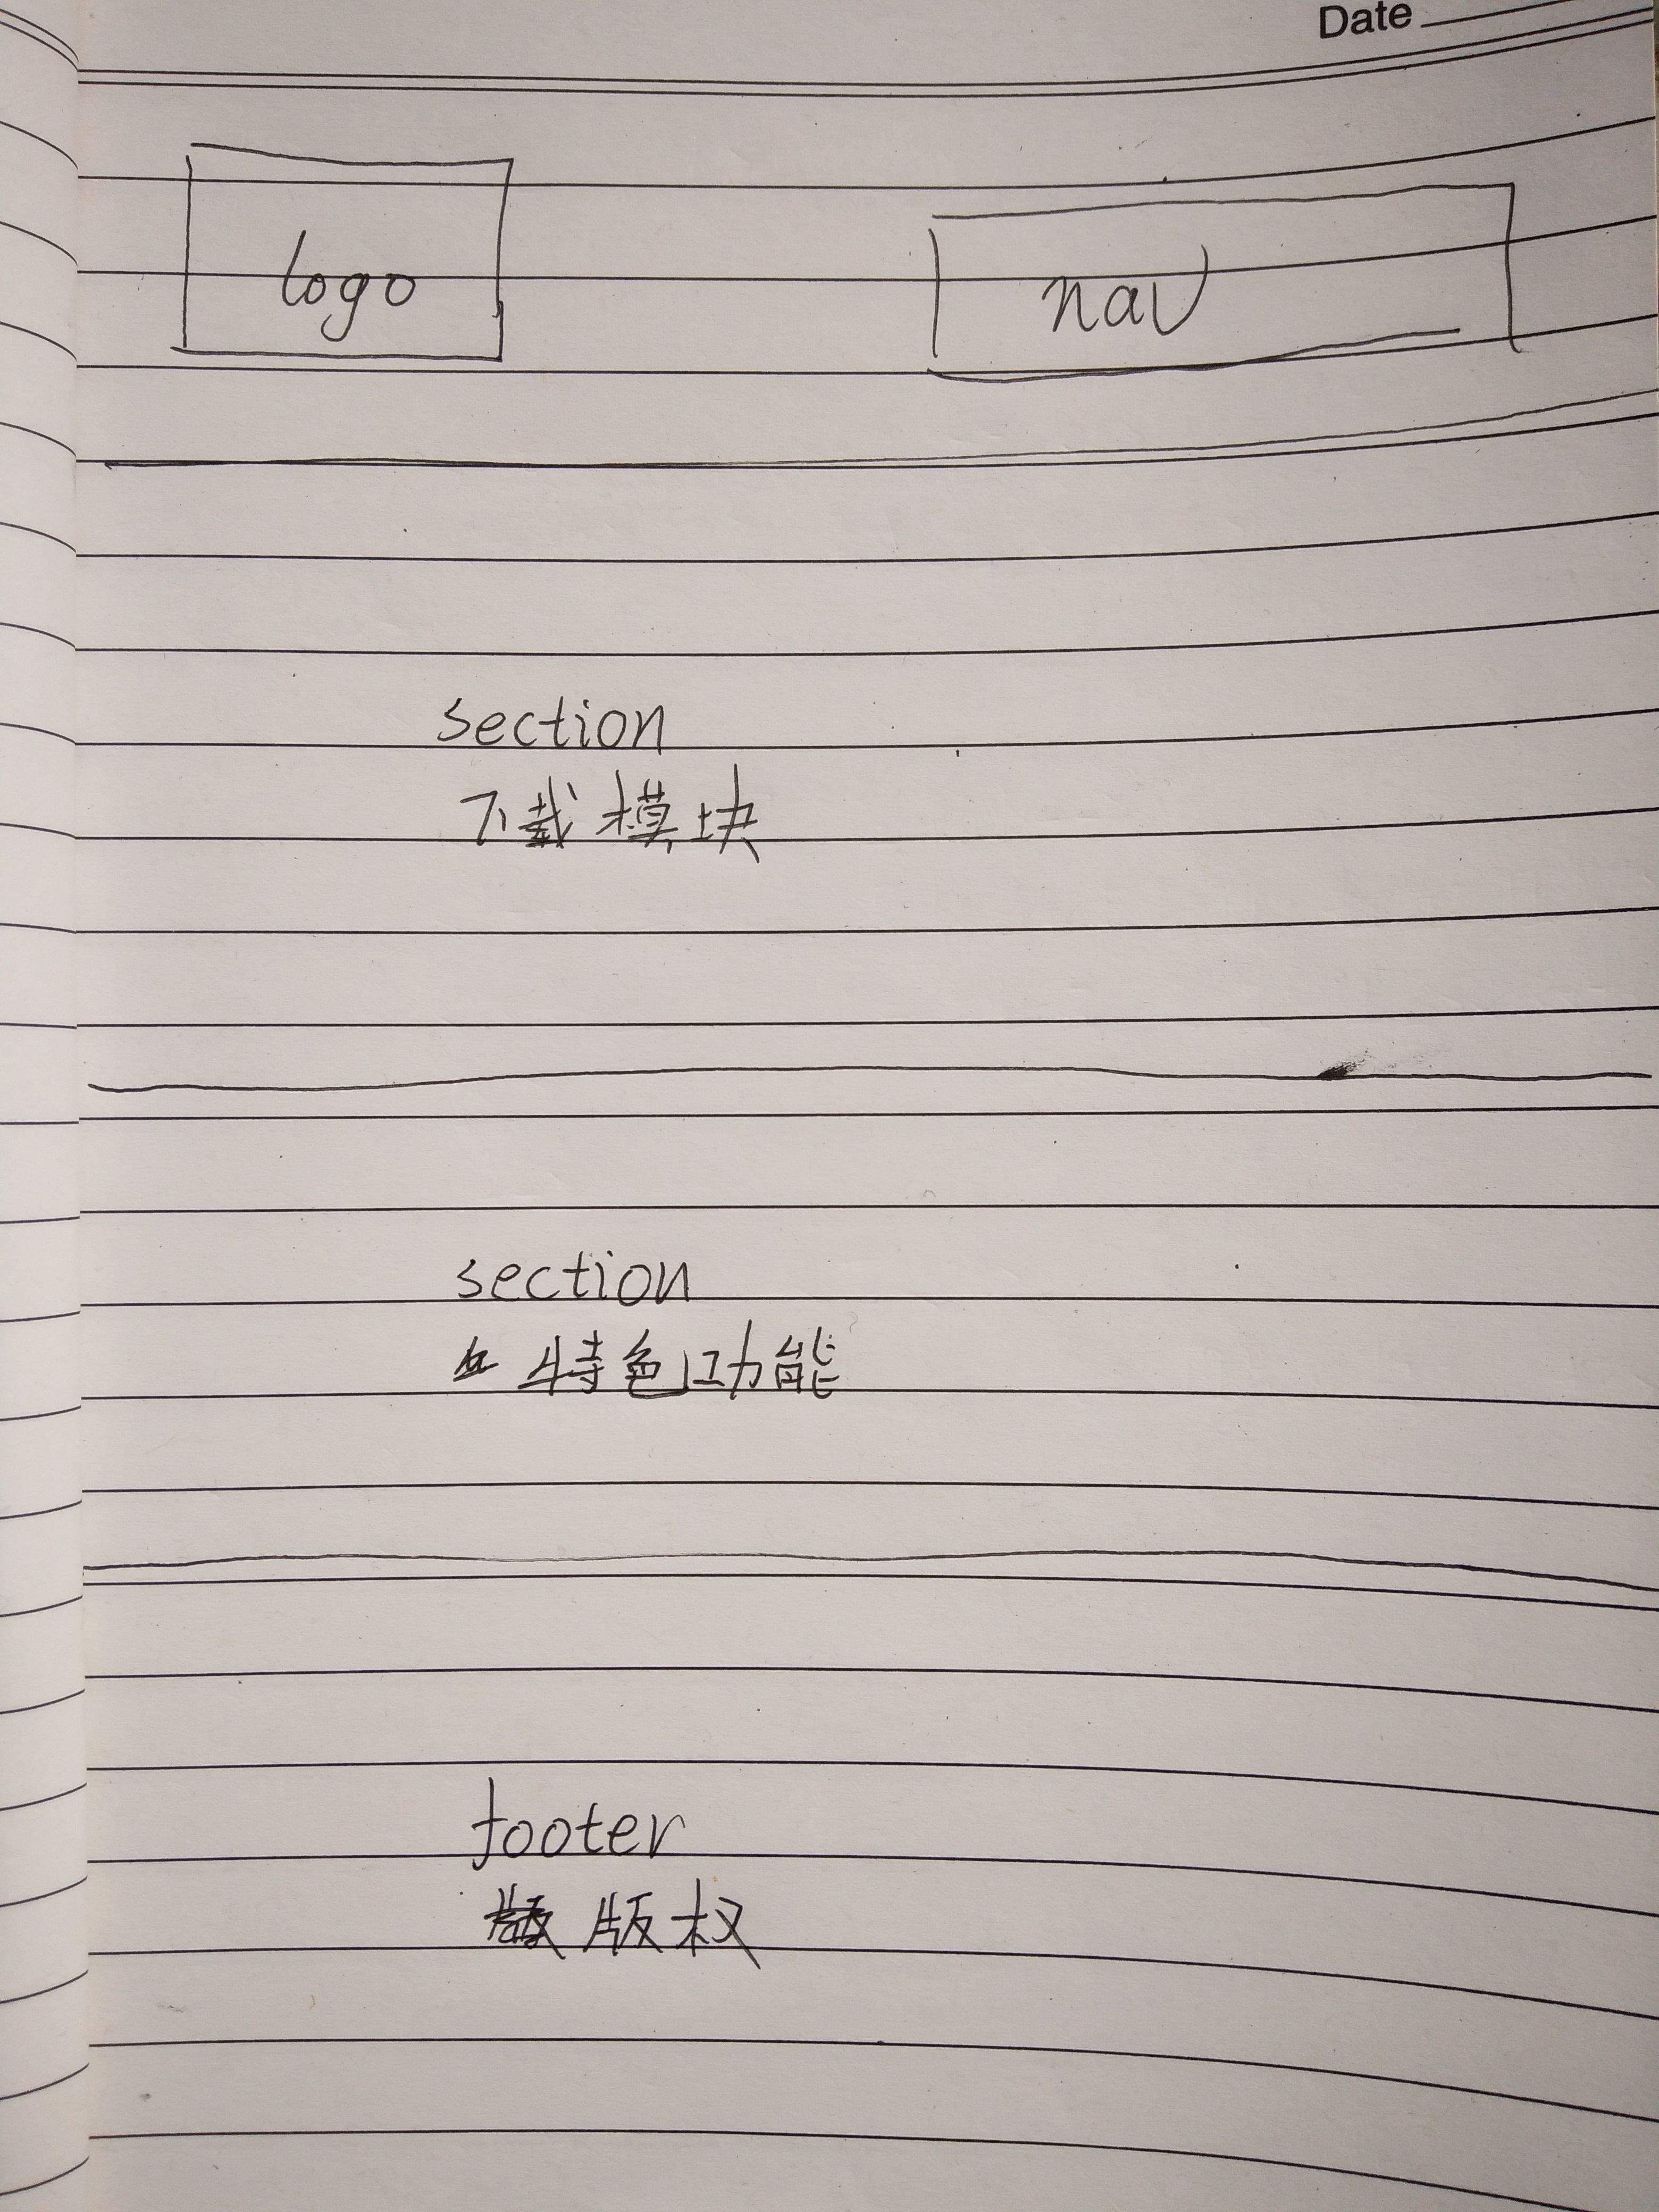 Date
logo
nav
section
下载模块
section
特色功能
footer
版权